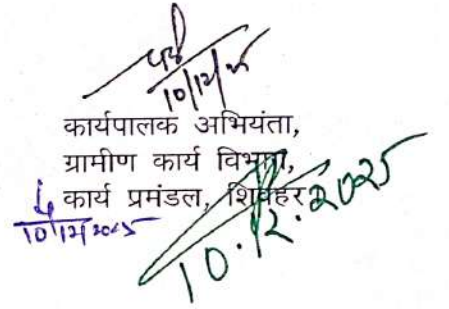 10/12/25
कार्यपालक अभियंता,
ग्रामीण कार्य विभाग,
कार्य प्रमंडल, शिवहर
10/12/2025
10.12.2025